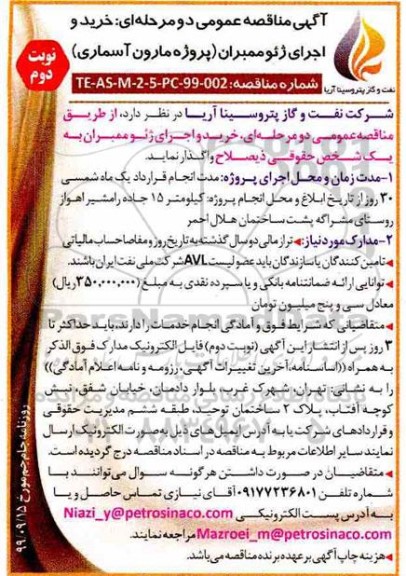 آگهی مناقصه عمومی دو مرحله‌ای: خرید و
اجرای ژئوممبران (پروژه مارون آسماری)
نوبت دوم
شماره مناقصه: TE-AS-M-2-5-PC-99-002
نفت و گاز پتروسینا آریا
شرکت نفت و گاز پتروسینا آریا در نظر دارد، از طریق
مناقصه عمومی دو مرحله‌ای، خرید و اجرای ژئو ممبران به
یک شخص حقوقی ذیصلاح واگذار نماید.
۱-مدت زمان و محل اجرای پروژه: مدت انجام قرارداد یک ماه شمسی
۳۰ روز از تاریخ ابلاغ و محل انجام پروژه: کیلومتر ۱۵ جاده رامشیر اهواز
روستای مشراگه پشت ساختمان هلال احمر
۲-مدارک مورد نیاز: ترازمالی دو سال گذشته به تاریخ روز و مفاصاحساب مالیاتی
تامین کنندگان یا سازندگان باید عضو لیست AVL شرکت ملی نفت ایران باشند.
توانایی ارائه ضمانتنامه بانکی و یا سپرده نقدی به مبلغ (۳۵۰,۰۰۰,۰۰۰ ریال)
معادل سی و پنج میلیون تومان
متقاضیانی که شرایط فوق و آمادگی انجام خدمات را دارند، باید حداکثر تا
۳ روز پس از انتشار این آگهی (نوبت دوم) فایل الکترونیک مدارک فوق الذکر
به همراه ((اساسنامه، آخرین تغییرات آگهی، رزومه و نامه اعلام آمادگی))
را به نشانی: تهران، شهرک غرب، بلوار دادمان، خیابان شفق، نبش
کوچه آفتاب، پلاک ۲ ساختمان توحید، طبقه ششم مدیریت حقوقی
و قراردادهای شرکت یا به آدرس ایمیل‌های ذیل به صورت الکترونیک ارسال
نمایند سایر اطلاعات مربوط به مناقصه در اسناد مناقصه درج گردیده است.
متقاضیان در صورت داشتن هر گونه سوال می‌توانند با
شماره تلفن ۰۹۱۷۷۲۳۶۸۰۱ آقای نیازی تماس حاصل و یا
به آدرس پست الکترونیکی Niazi_y@petrosinaco.com
Mazroei_m@petrosinaco.com مراجعه نمایند.
هزینه چاپ آگهی بر عهده برنده مناقصه می‌باشد.
روزنامه جام جم مورخ ۹۹/۰۹/۱۵